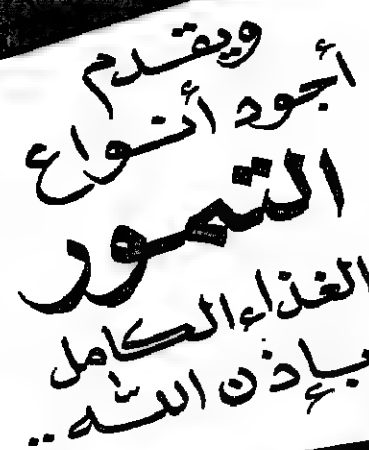 ويقدم
أجود أنواع
التمور
الغذاء الكامل
بإذن الله ..